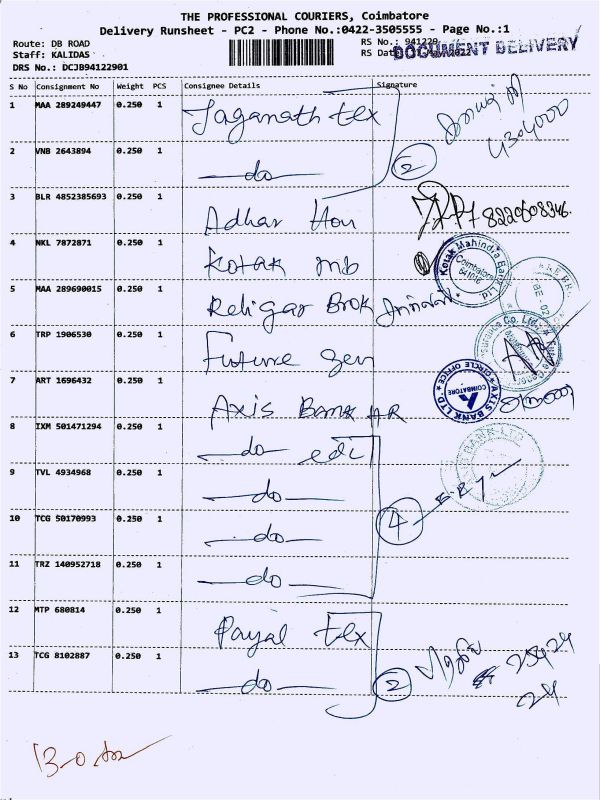 THE PROFESSIONAL COURIERS, Coimbatore
Delivery Runsheet - PC2 - Phone No.:0422-3505555 - Page No.:1
Route: DB ROAD
Staff: KALIDAS
DRS No.: DCJB94122901
RS No.: 941229
RS Dat
DOCUMENT DELIVERY
S No Consignment No Weight PCS Consignee Details Signature
1 MAA 289249447 0.250 1 Jaganath tex
2 VNB 2643894 0.250 1 —do— 2
3 BLR 4852385693 0.250 1 Adhar Hou 8220608346
4 NKL 7872871 0.250 1 Kotak mb
Kotak Mahindra Bank Ltd
Coimbatore
641018
5 MAA 289690015 0.250 1 Religar Brok
6 TRP 1906530 0.250 1 Future Gen
7 ART 1696432 0.250 1 Axis Bank HR
AXIS BANK LTD.
CIRCLE OFFICE
COIMBATORE
8 IXM 501471294 0.250 1 —do—
BANK LTD
9 TVL 4934968 0.250 1 —do—
10 TCG 50170993 0.250 1 —do— 4
11 TRZ 140952718 0.250 1 —do—
12 MTP 680814 0.250 1 Payal tex
13 TCG 8102887 0.250 1 —do— 2